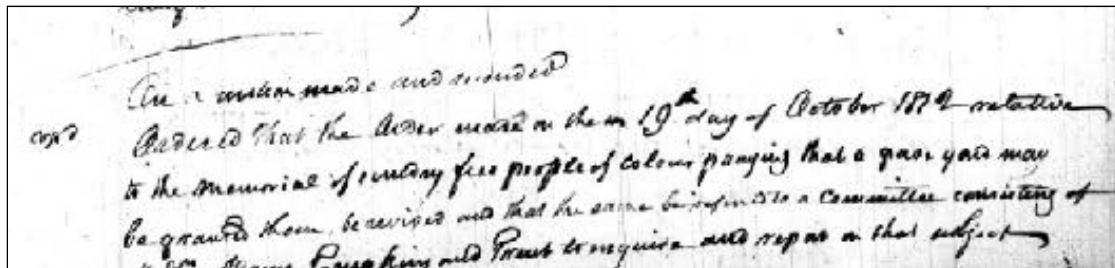 On a motion made and seconded
cop'd Ordered that the Order made on the 19th day of October 1812 relative
to the memorial of sundry free people of colour praying that a grave yard may
be granted them, be revived and that the same be referred to a Committee consisting of
and Prout to enquire and report on that subject